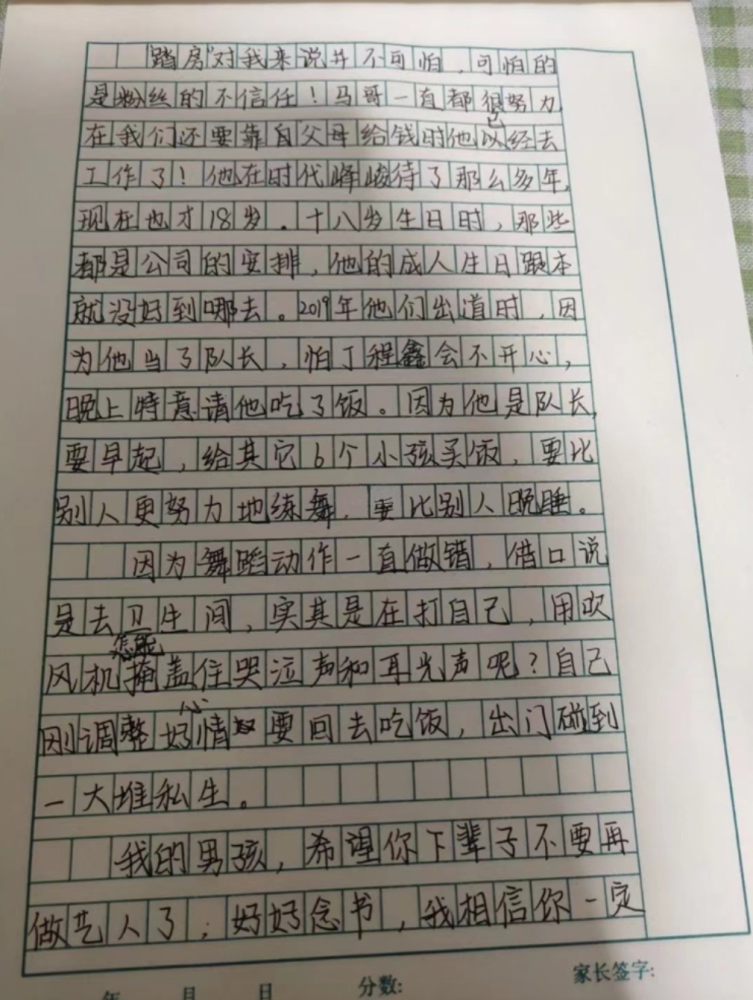 “踏房”对我来说并不可怕，可怕的
是粉丝的不信任！马哥一直都很努力，
在我们还要靠自父母给钱时他以经去
已
工作了！他在时代峰峻待了那么多年，
现在也才18岁。十八岁生日时，那些
都是公司的安排，他的成人生日跟本
就没好到哪去。2019年他们出道时，因
为他当了队长，怕丁程鑫会不开心，
晚上特意请他吃了饭。因为他是队长，
要早起，给其它6个小孩买饭，要比
别人更努力地练舞，要比别人晚睡。
因为舞蹈动作一直做错，借口说
是去卫生间，实其是在打自己，用吹
怎能
风机掩盖住哭泣声和耳光声呢？自己
心
刚调整好情要回去吃饭，出门碰到
一大堆私生。
我的男孩，希望你下辈子不要再
做艺人了；好好念书，我相信你一定
年 月 日 分数: 家长签字: